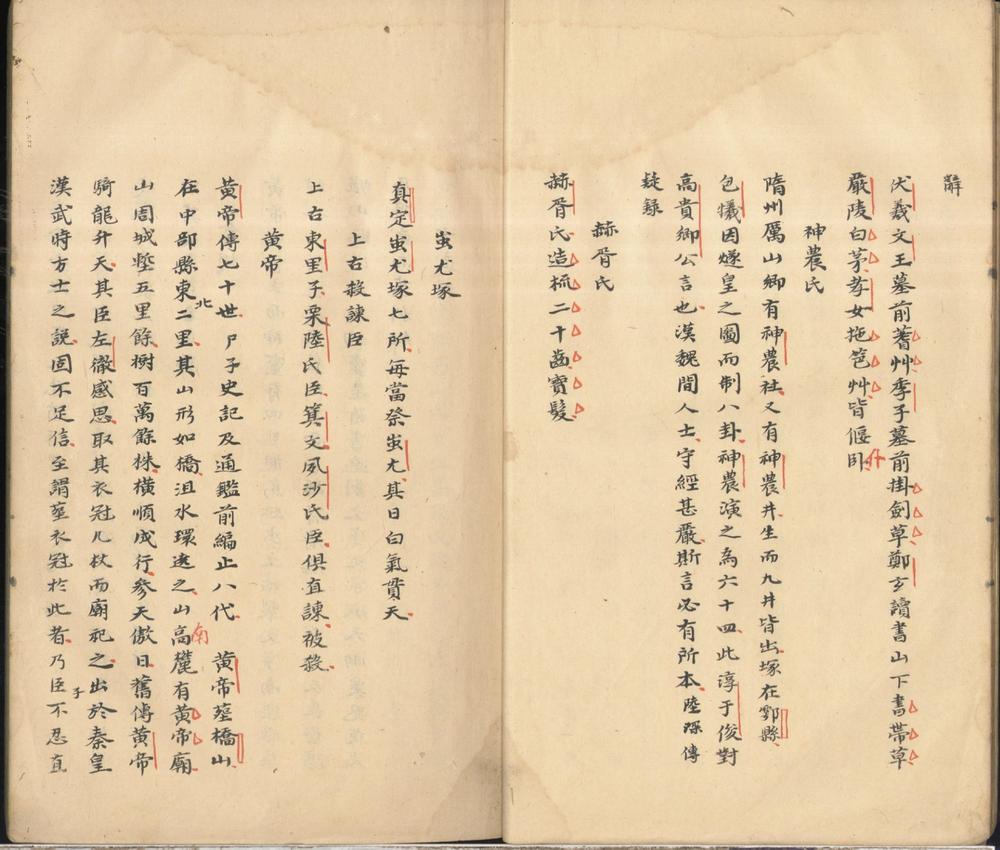 辭
伏羲文王墓前蓍艸季子墓前掛劍草鄭玄讀書山下書帶草
嚴陵白茅孝女拖笆艸皆偃卧
神農氏
隋州厲山鄉有神農社又有神農井生而九井皆出塚在酃縣
包犧因燧皇之圖而制八卦神農演之為六十四此淳于俊對
高貴鄉公言也漢魏間人士守經甚嚴斯言必有所本陸璪傳
疑錄
赫胥氏
赫胥氏造梳二十齒實髮
蚩尤塚
真定蚩尤塚七所每當祭蚩尤其日白氣貫天
上古殺諫臣
上古東里子栗陸氏臣箕文夙沙氏臣俱直諫被殺
黃帝
黃帝傳七十世尸子史記及通鑑前編止八代 黃帝塋橋山
在中部縣東北二里其山形如橋沮水環遶之山高南麓有黃帝廟
山周城墼五里餘樹百萬餘株橫順成行參天傲日舊傳黃帝
騎龍升天其臣左徹感思取其衣冠几杖而廟祀之出於秦皇
漢武時方士之說固不足信至謂塟衣冠於此者乃臣子不忍直